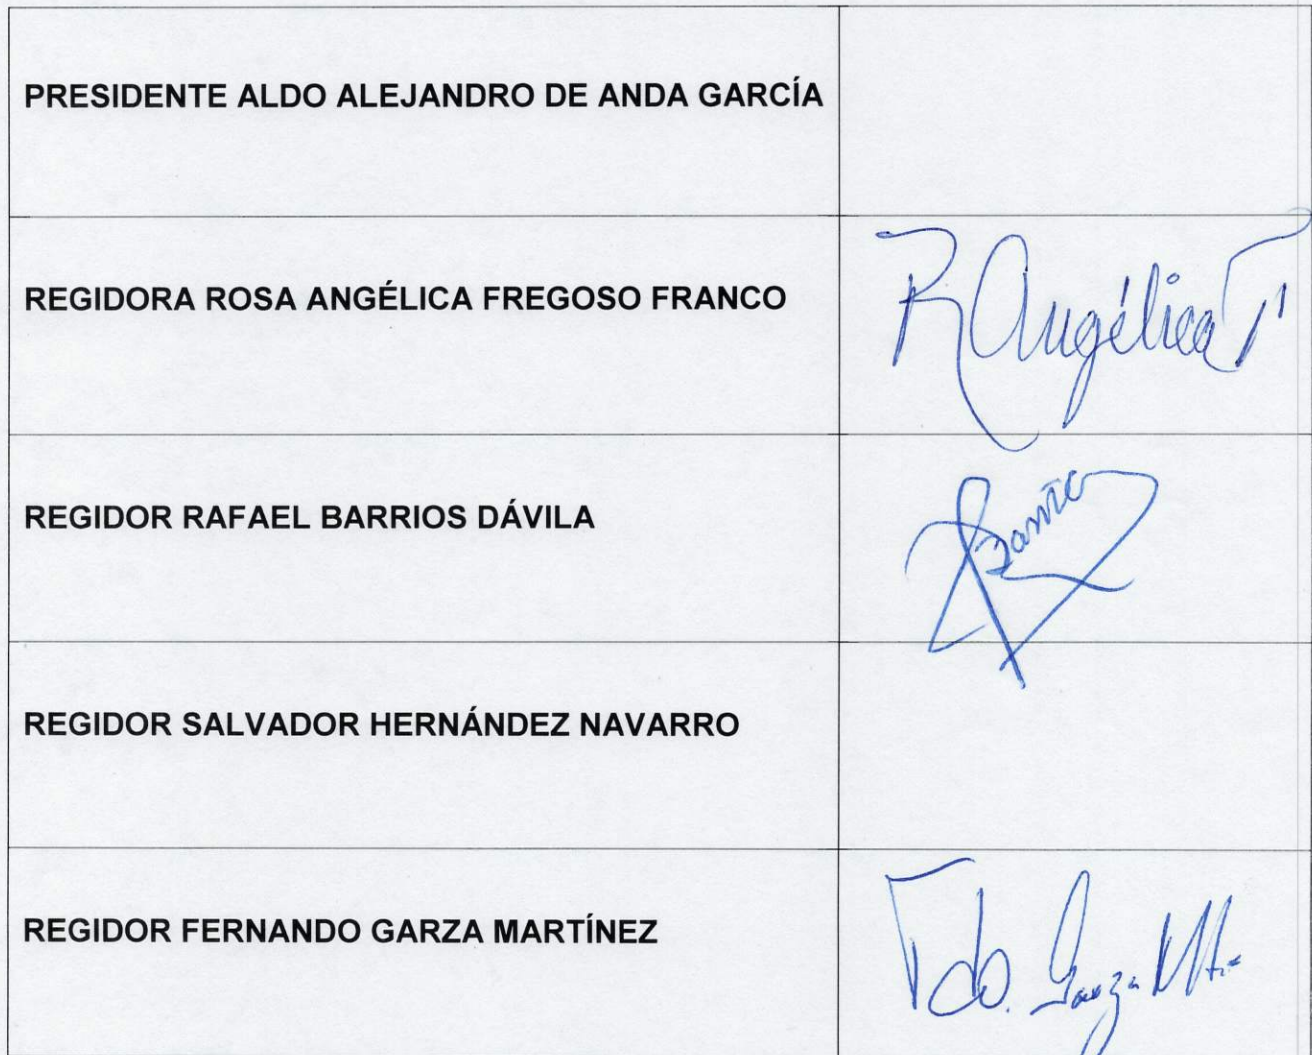 PRESIDENTE ALDO ALEJANDRO DE ANDA GARCÍA
REGIDORA ROSA ANGÉLICA FREGOSO FRANCO
R Angélica F
REGIDOR RAFAEL BARRIOS DÁVILA
REGIDOR SALVADOR HERNÁNDEZ NAVARRO
REGIDOR FERNANDO GARZA MARTÍNEZ
Fdo. Garza Mtz